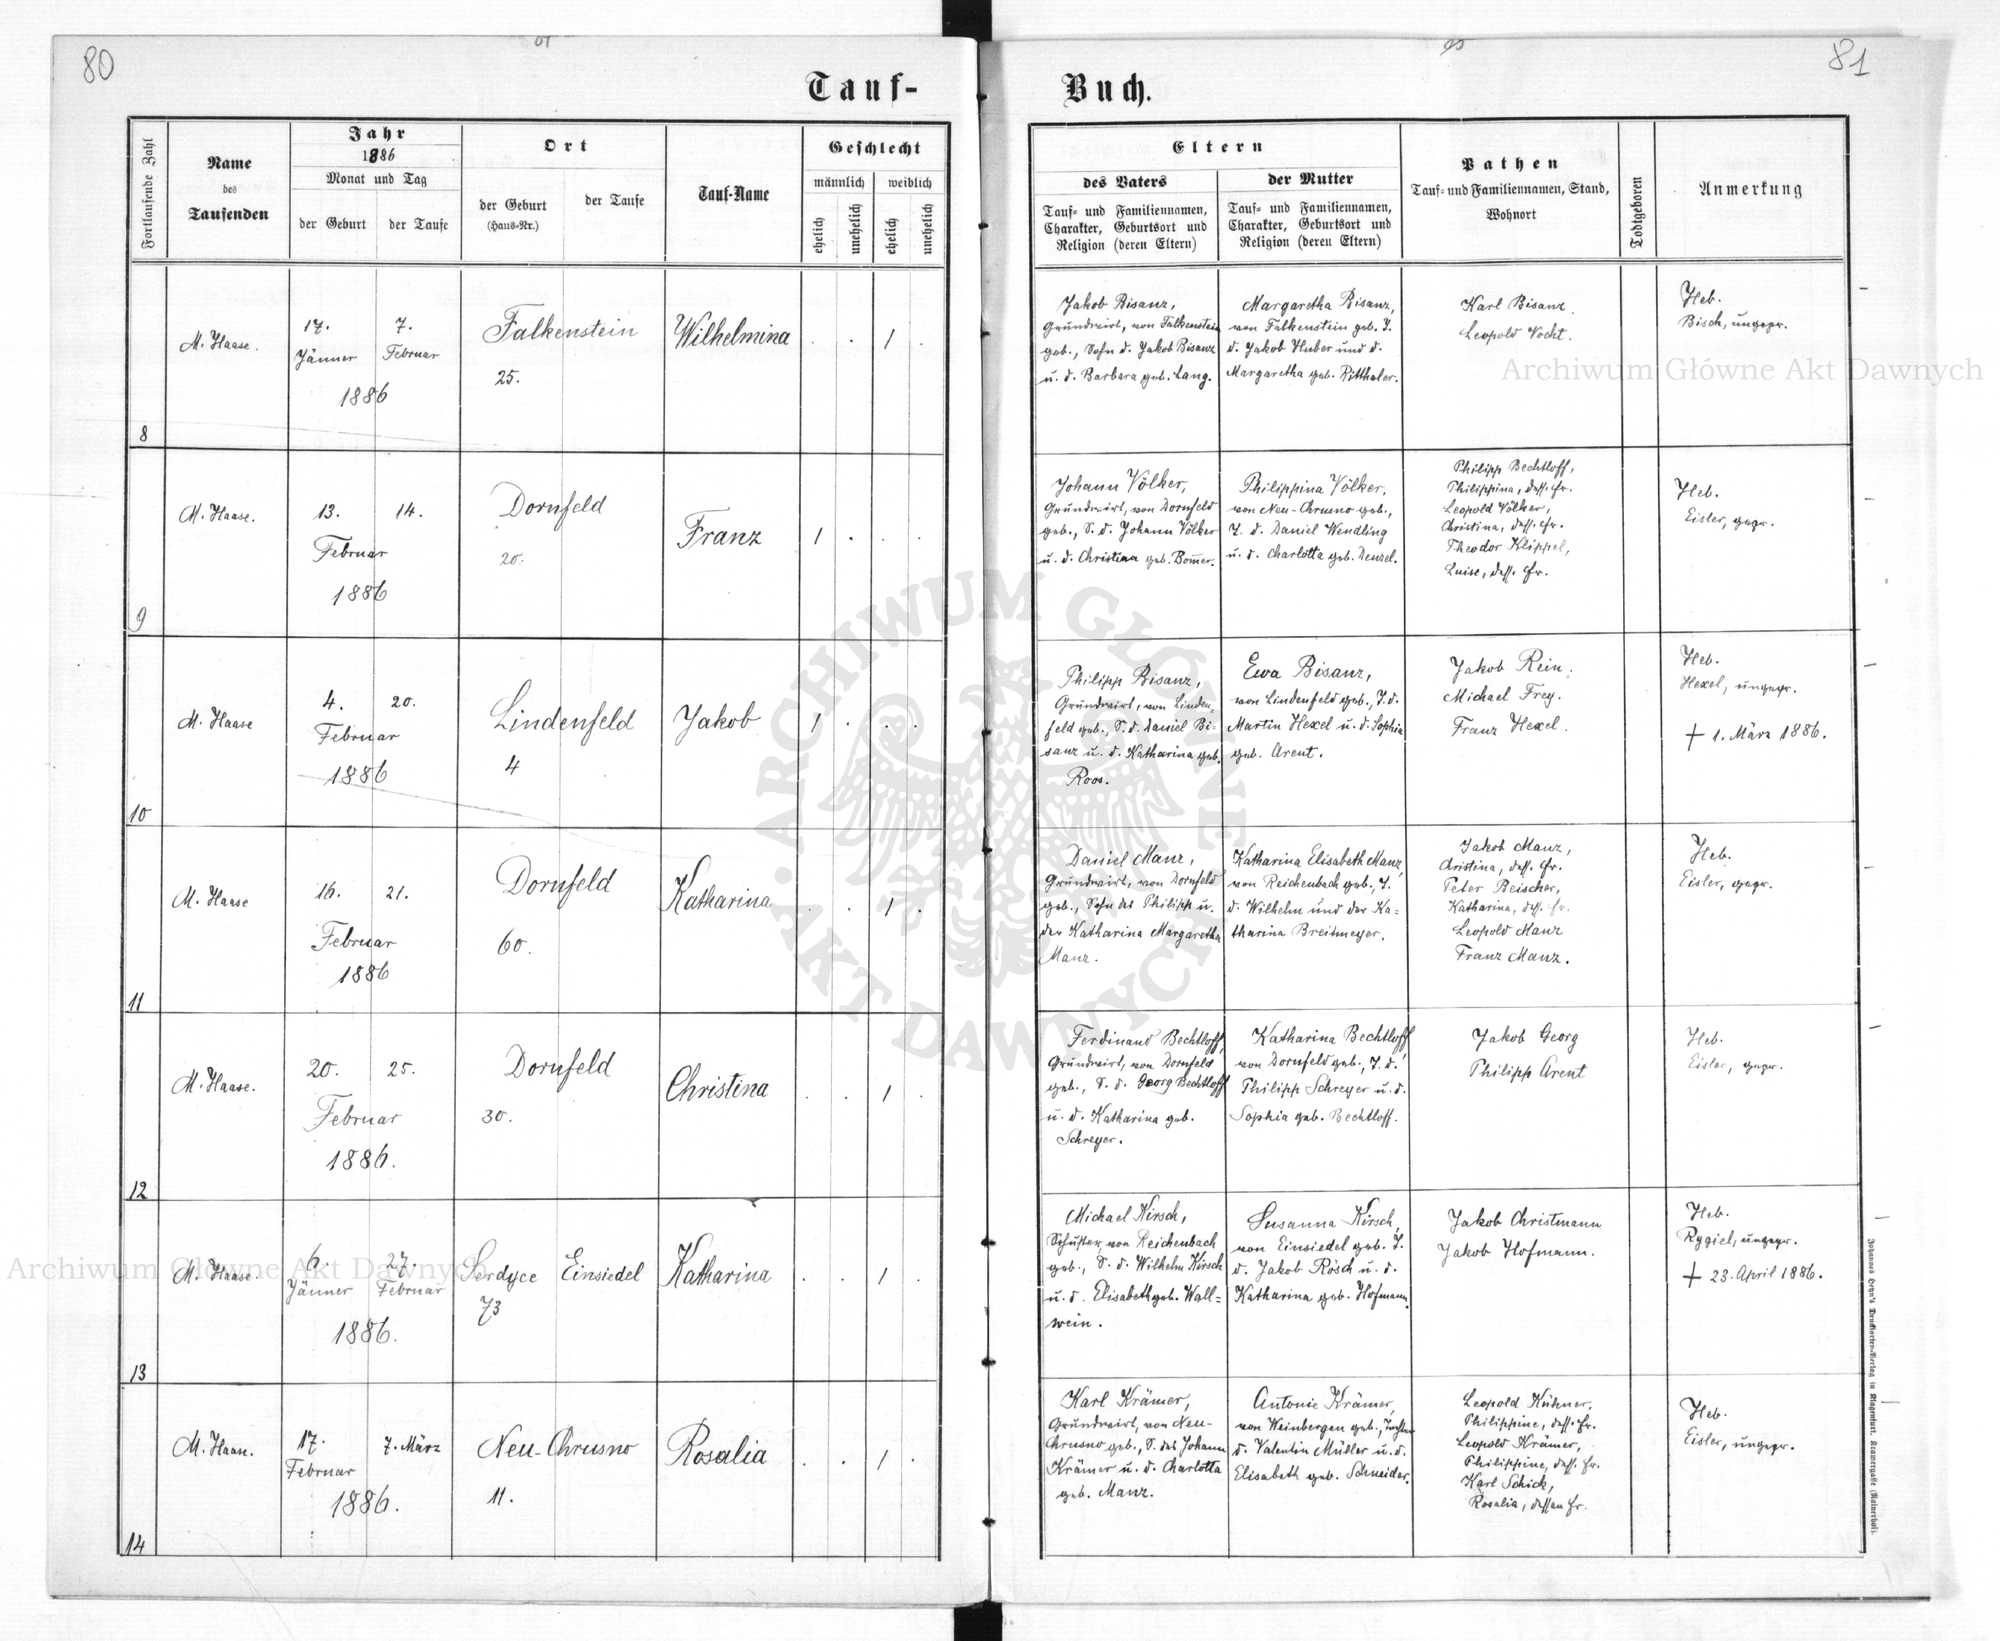 80
81
Tauf-
Buch.
Fortlaufende Zahl
Name
des
Taufenden
Jahr
1886
Monat und Tag
der Geburt
der Taufe
Ort
der Geburt
(Haus-Nr.)
der Taufe
Tauf-Name
Geschlecht
männlich
weiblich
ehelich
unehelich
ehelich
unehelich
Eltern
des Vaters
Tauf- und Familiennamen,
Charakter, Geburtsort und
Religion (deren Eltern)
der Mutter
Tauf- und Familiennamen,
Charakter, Geburtsort und
Religion (deren Eltern)
Pathen
Tauf- und Familiennamen, Stand,
Wohnort
Todtgeboren
Anmerkung
8
M. Haase.
17.
Jänner
7.
Februar
1886
Falkenstein
25.
Wilhelmina
. . 1 .
Jakob Bisanz,
Grundwirt, von Falkenstein
geb., Sohn d. Jakob Bisanz
u. d. Barbera geb. Lang.
Margaretha Bisanz,
von Falkenstein geb. T.
d. Jakob Huber und d.
Margaretha geb. Ritthaler.
Karl Bisanz.
Leopold Vocht.
Heb.
Bisch, ungepr.
9
M. Haase.
13.
14.
Februar
1886
Dornfeld
20.
Franz
1 . . .
Johann Völker,
Grundwirt, von Dornfeld
geb., S. d. Johann Völker
u. d. Christina geb. Bom̄er.
Philippina Völker,
von Neu-Chrusno geb.,
T. d. Daniel Wendling
u. d. Charlotta geb. Denzel.
Philipp Bechtloff,
Philippina, dess. Fr.
Leopold Völker,
Christina, dess. Fr.
Theodor Klippel,
Luise, dess. Fr.
Heb.
Eisler, gepr.
10
M. Haase
4.
20.
Februar
1886
Lindenfeld
4
Jakob
1 . . .
Philipp Bisanz,
Grundwirt, von Linden-
feld geb., S. d. Daniel Bi-
sanz u. d. Katharina geb.
Roos.
Ewa Bisanz,
von Lindenfeld geb., T. d.
Martin Hexel u. d. Sophia
geb. Arent.
Jakob Rein.
Michael Frey.
Franz Hexel.
Heb.
Hexel, ungepr.
† 1. März 1886.
11
M. Haase
16.
21.
Februar
1886
Dornfeld
60.
Katharina
. . 1 .
Daniel Manz,
Grundwirt, von Dornfeld
geb., Sohn des Philipp u.
der Katharina Margaretha
Manz.
Katharina Elisabeth Manz,
von Reichenbach geb., T.
d. Wilhelm und der Ka-
tharina Breitmeyer.
Jakob Manz,
Christina, dess. Fr.
Peter Beischer,
Katharina, dess. Fr.
Leopold Manz
Franz Manz.
Heb.
Eisler, gepr.
12
M. Haase.
20.
25.
Februar
1886.
Dornfeld
30.
Christina
. . 1 .
Ferdinand Bechtloff,
Grundwirt, von Dornfeld
geb., S. d. Georg Bechtloff
u. d. Katharina geb.
Schreyer.
Katharina Bechtloff,
von Dornfeld geb., T. d.
Philipp Schreyer u. d.
Sophia geb. Bechtloff.
Jakob Georg
Philipp Arent
Heb.
Eisler, gepr.
13
M. Haase.
6.
Jänner
27.
Februar
1886.
Serdyce
73
Einsiedel
Katharina
. . 1 .
Michael Kirsch,
Schuster, von Reichenbach
geb., S. d. Wilhelm Kirsch
u. d. Elisabeth geb. Wall-
wein.
Susanna Kirsch,
von Einsiedel geb. T.
d. Jakob Rösch u. d.
Katharina geb. Hofmann.
Jakob Christmann
Jakob Hofmann.
Heb.
Rygiel, ungepr.
† 23. April 1886.
14
M. Haase.
17.
Februar
7. März
1886.
Neu-Chrusno
11.
Rosalia
. . 1 .
Karl Krämer,
Grundwirt, von Neu-
Chrusno geb., S. des Johann
Krämer u. d. Charlotta
geb. Manz.
Antonie Krämer,
von Weinbergen geb., Tochter
d. Valentin Müller u. d.
Elisabeth geb. Schneider.
Leopold Kühner,
Philippine, dess. Fr.
Leopold Krämer,
Philippine, dess. Fr.
Karl Schick,
Rosalia, dessen Fr.
Heb.
Eisler, ungepr.
Johannes Heyn's Drucksorten-Verlag in Klagenfurt, Kramergasse (Rainerhof).
Archiwum Główne Akt Dawnych
Archiwum Główne Akt Dawnych
· ARCHIWUM GŁÓWNE · AKT DAWNYCH